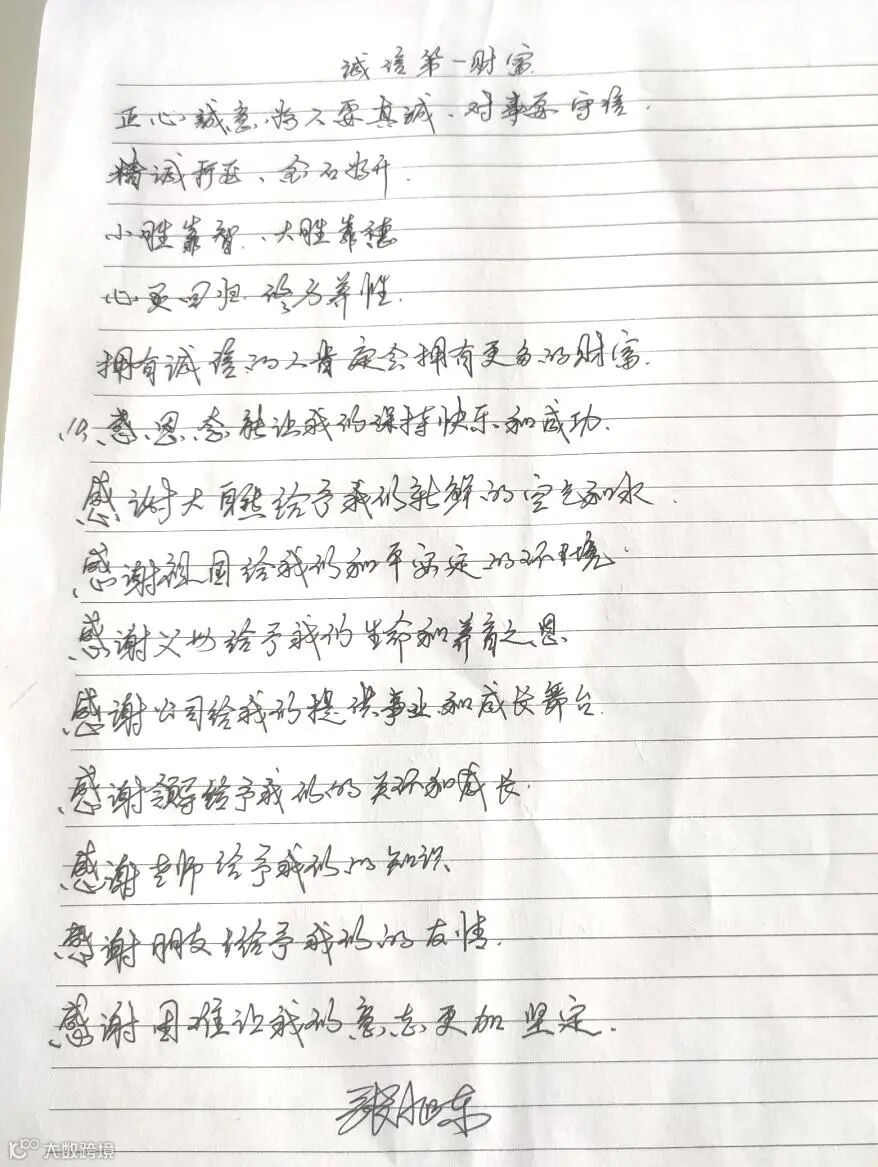 诚信第一财富
正心誠意、为人要真诚、对事要守信.
精诚所至、金石为开.
小胜靠智、大胜靠德
心灵回归 修身养性.
拥有诚信的人肯定会拥有更多的财富.
10、感恩态能让我们保持快乐和成功.
感谢大自然给予我们新鲜的空气和水.
感谢祖国给我们和平安定的环境.
感谢父母给予我们生命和养育之恩
感谢公司给我们提供事业和成长舞台.
感谢领导给予我们的关怀和成长.
感谢老师给予我们的知识、
感谢朋友给予我们的友情.
感谢困难让我们意志更加坚定.
张旭东
大数跨境